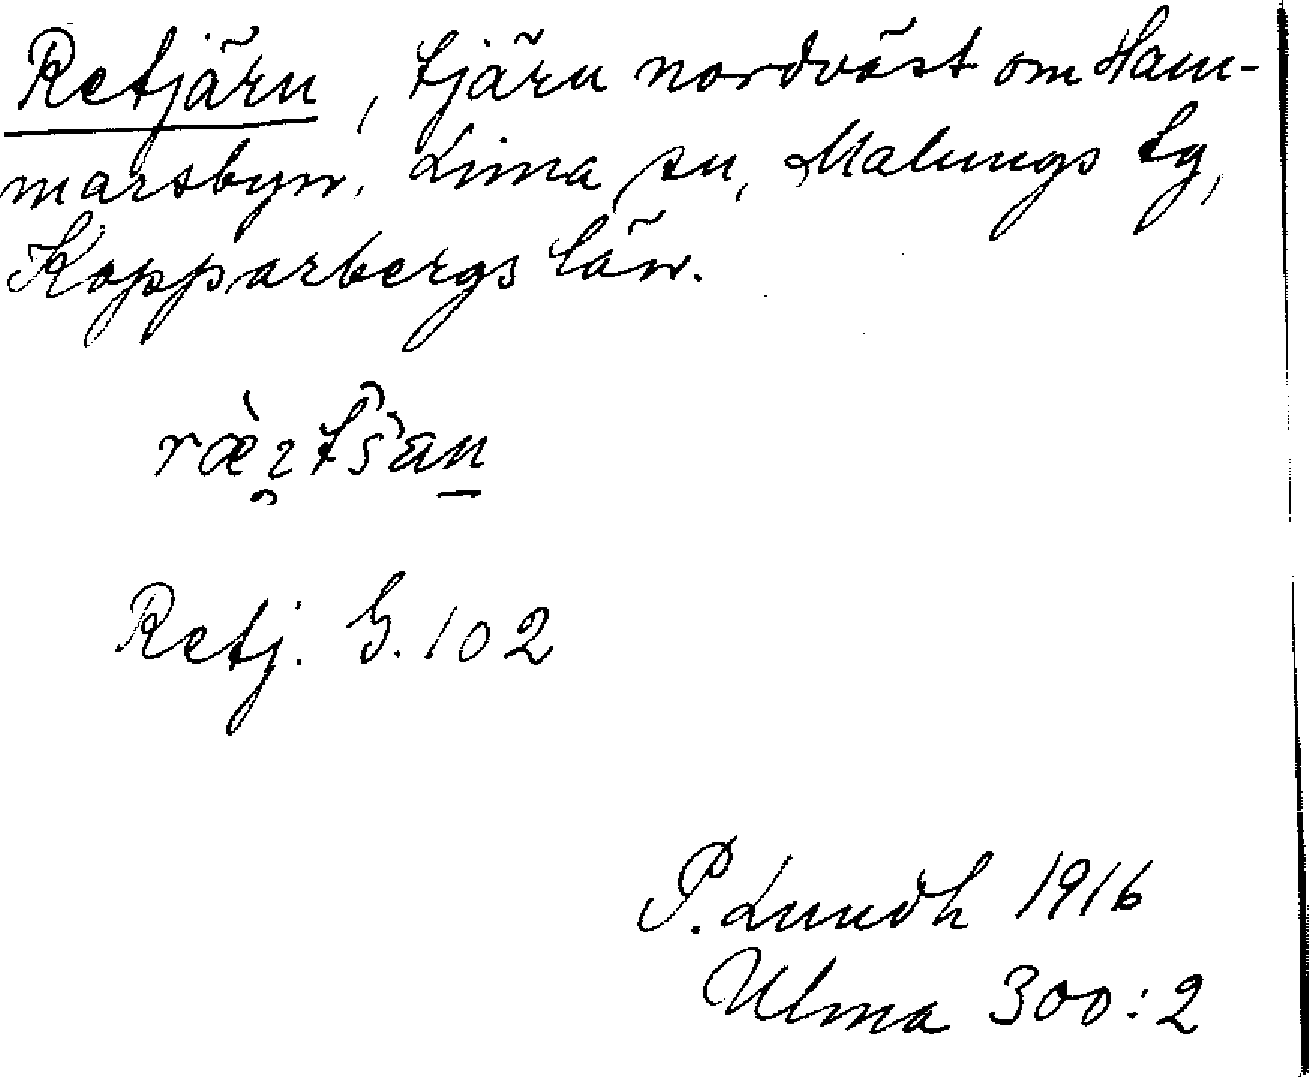 Retjärn, tjärn nordväst om Ham-
marsbyn. Lima sn, Malungs tg,
Kopparbergs län.
Retj. G. 102
P. Lundh 1916
Ulma 300:2